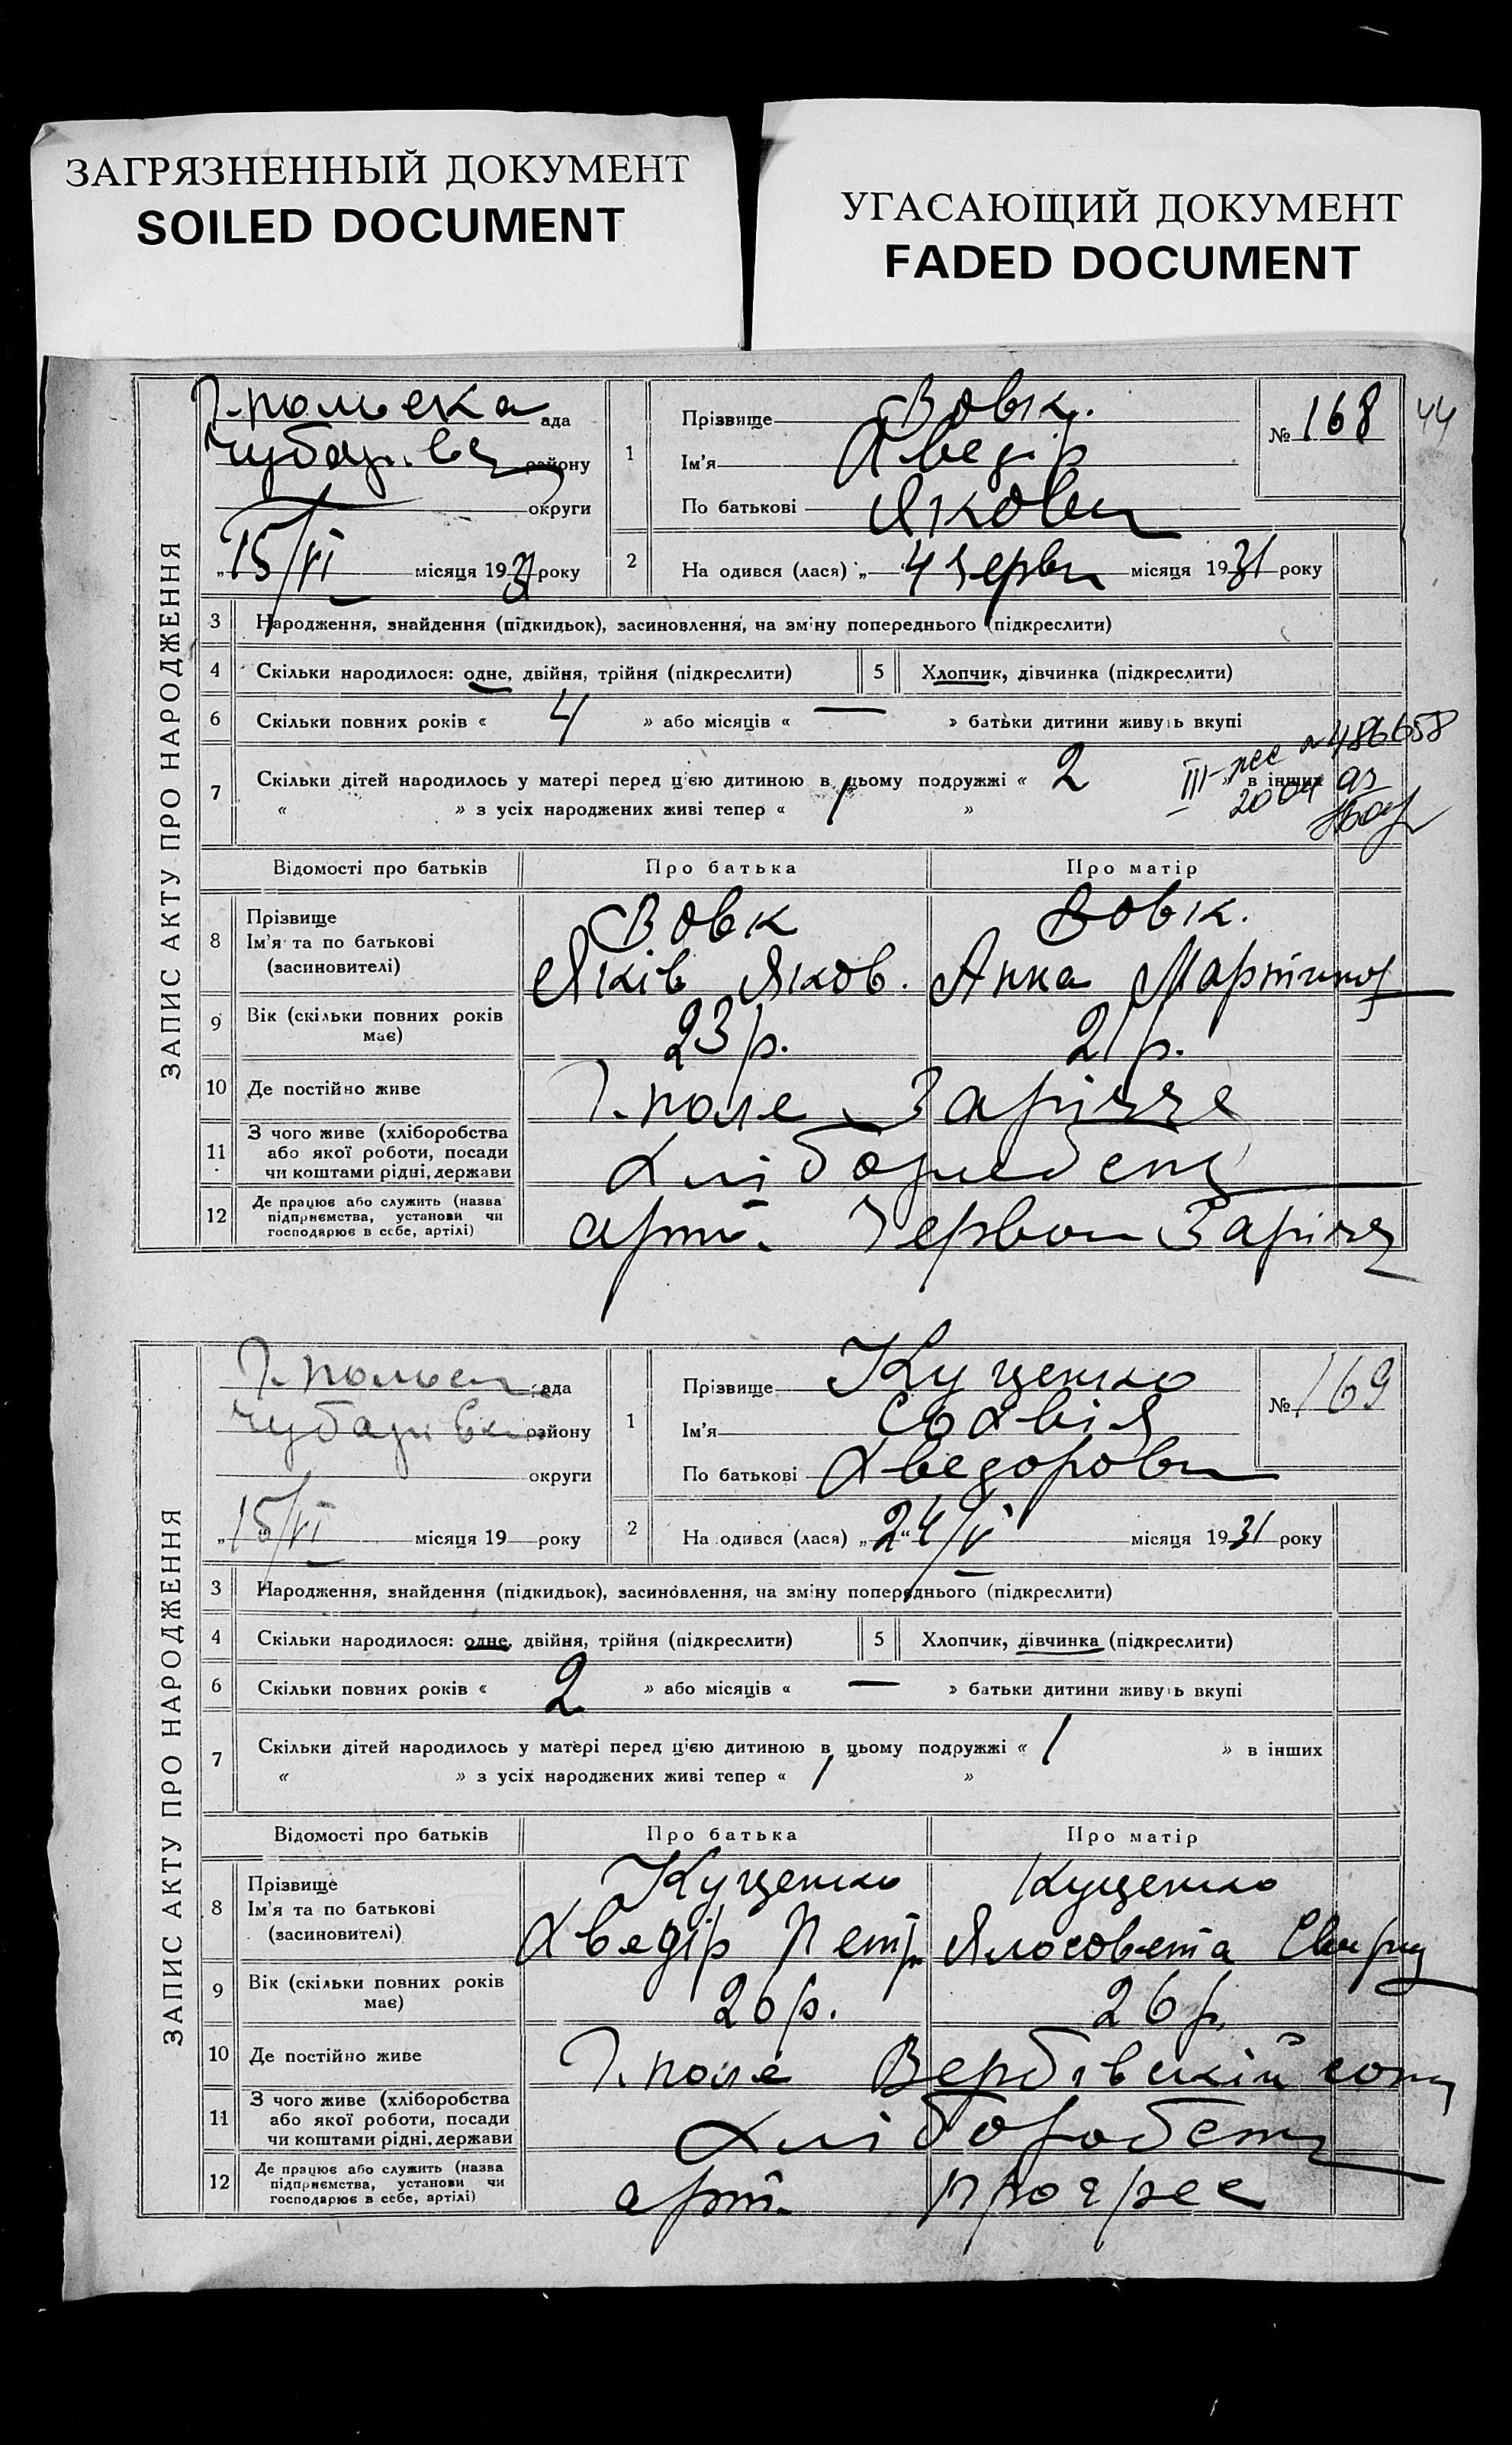 ЗАГРЯЗНЕННЫЙ ДОКУМЕНТ
SOILED DOCUMENT
УГАСАЮЩИЙ ДОКУМЕНТ
FADED DOCUMENT
ЗАПИС АКТУ ПРО НАРОДЖЕННЯ
Г.польска ада
району
округи
„15/VI місяця 1931 року
1
Прізвище Вовк.
Ім'я Хведір
По батькові Якович
№ 168
44
2 На одився (лася) „4 червн місяця 1931 року
3 Народження, знайдення (підкидьок), засиновлення, на зміну попереднього (підкреслити)
4 Скільки народилося: одне, двійня, трійня (підкреслити) 5 Хлопчик, дівчинка (підкреслити)
6 Скільки повних років « 4 » або місяців « — » батьки дитини живуть вкупі
7 Скільки дітей народилось у матері перед цією дитиною в цьому подружжі « 2 » в інших
« » з усіх народжених живі тепер « 1 »
486658
Відомості про батьків Про батька Про матір
8 Прізвище
Ім'я та по батькові
(засиновителі)
Вовк Вовк.
Яків Яков. Анна Мартинов
9 Вік (скільки повних років має) 23 р. 21 р.
10 Де постійно живе Г.поле Заріччя
11 З чого живе (хліборобства
або якої роботи, посади
чи коштами рідні, держави
хлібороб
12 Де працює або служить (назва
підприємства, установи чи
господарює в себе, артілі)
арт. Червон Заріччя
ЗАПИС АКТУ ПРО НАРОДЖЕННЯ
Г.польск ада
району
округи
„15/VI місяця 19 року
1
Прізвище Куценко
Ім'я Сохвія
По батькові Хведоровн
№ 169
2 На одився (лася) „24/V місяця 1931 року
3 Народження, знайдення (підкидьок), засиновлення, на зміну попереднього (підкреслити)
4 Скільки народилося: одне, двійня, трійня (підкреслити) 5 Хлопчик, дівчинка (підкреслити)
6 Скільки повних років « 2 » або місяців « — » батьки дитини живуть вкупі
7 Скільки дітей народилось у матері перед цією дитиною в цьому подружжі « 1 » в інших
« » з усіх народжених живі тепер « 1 »
Відомості про батьків Про батька Про матір
8 Прізвище
Ім'я та по батькові
(засиновителі)
Куценко Куценко
Хведір Петр.
9 Вік (скільки повних років має) 26 р. 26 р.
10 Де постійно живе Г.поле Вербівский
11 З чого живе (хліборобства
або якої роботи, посади
чи коштами рідні, держави
хліборобств
12 Де працює або служить (назва
підприємства, установи чи
господарює в себе, артілі)
арт. прогрес